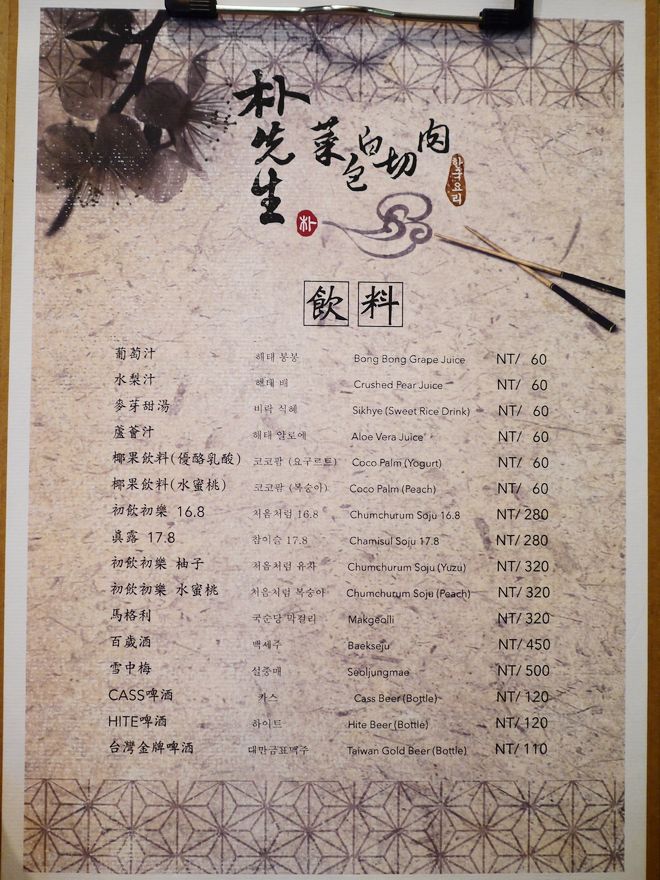 朴先生
菜包白切肉
한국요리
朴
飲料
葡萄汁 해태 봉봉 Bong Bong Grape Juice NT/ 60
水梨汁 해태 배 Crushed Pear Juice NT/ 60
麥芽甜湯 비락 식혜 Sikhye (Sweet Rice Drink) NT/ 60
蘆薈汁 해태 알로에 Aloe Vera Juice NT/ 60
椰果飲料(優酪乳酸) 코코팜 (요구르트) Coco Palm (Yogurt) NT/ 60
椰果飲料(水蜜桃) 코코팜 (복숭아) Coco Palm (Peach) NT/ 60
初飲初樂 16.8 처음처럼 16.8 Chumchurum Soju 16.8 NT/ 280
真露 17.8 참이슬 17.8 Chamisul Soju 17.8 NT/ 280
初飲初樂 柚子 처음처럼 유자 Chumchurum Soju (Yuzu) NT/ 320
初飲初樂 水蜜桃 처음처럼 복숭아 Chumchurum Soju (Peach) NT/ 320
馬格利 국순당 막걸리 Makgeolli NT/ 320
百歲酒 백세주 Baekseju NT/ 450
雪中梅 설중매 Seoljungmae NT/ 500
CASS啤酒 카스 Cass Beer (Bottle) NT/ 120
HITE啤酒 하이트 Hite Beer (Bottle) NT/ 120
台灣金牌啤酒 대만금표맥주 Taiwan Gold Beer (Bottle) NT/ 110